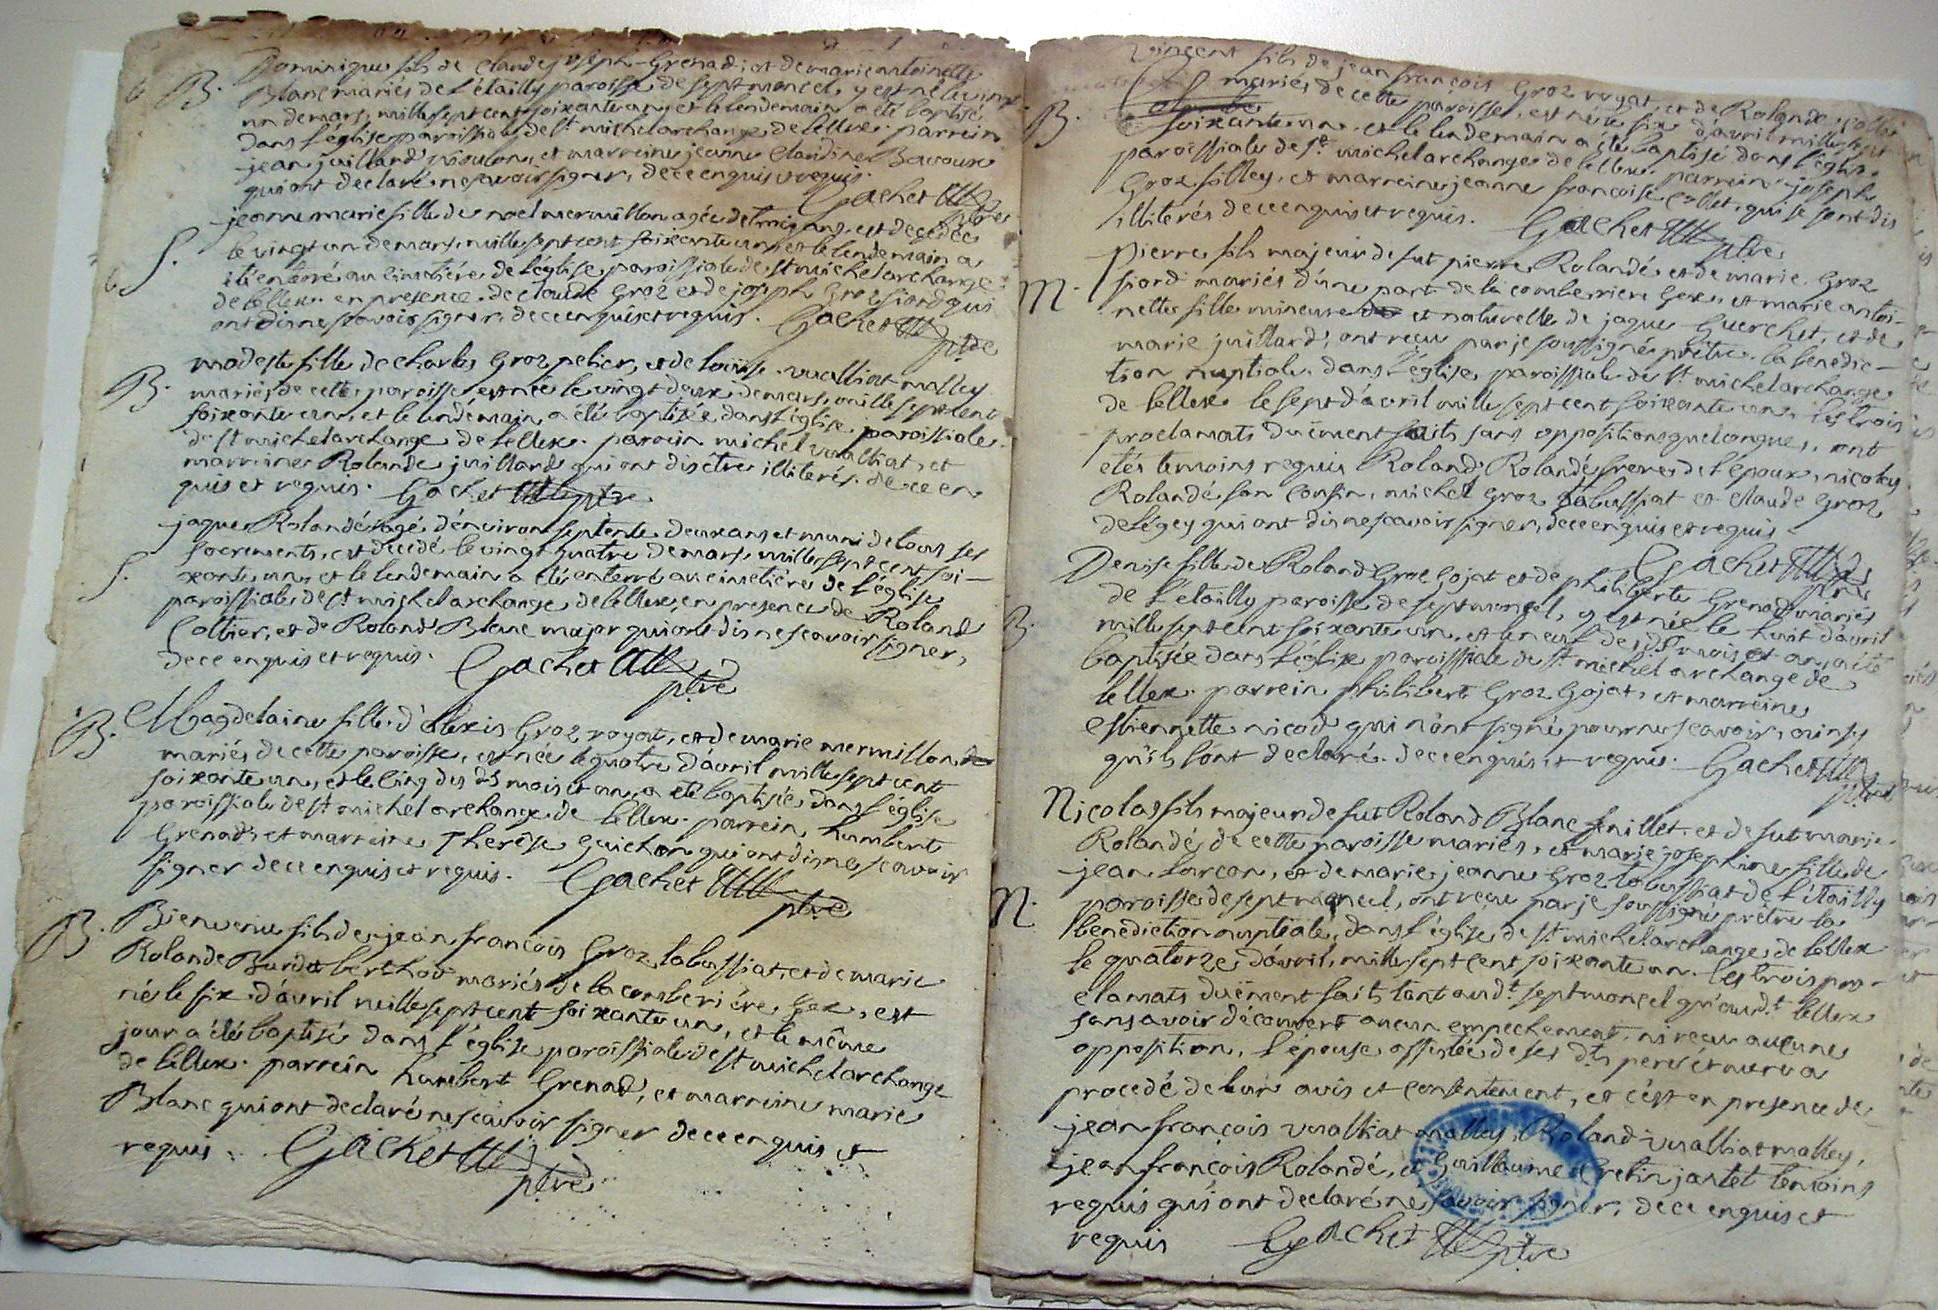 B. Dominique fils de Claude joseph Grenad, et de marie antoinette
Blanc mariés de L'étailly paroisse de septmoncel, y est né le vingt
un de mars, mille sept cent soixante un, et le lendemain a été baptisé
dans l'église paroissiale de st michel archange de lellex. parrein
jean juillard nicolon, et marreine jeanne Claudine Bavoux
qui ont declaré ne scavoir signer, de ce enquis et requis.
Gachet ptre
S. jeanne marie fille de noel mermillon agée de trois ans, est decedée
le vingt un de mars, mille sept cent soixante un, et le lendemain a
été enterré au cimetière de l'église paroissiale de st michel archange
de lellex. en presence de claude Groz et de joseph Groz fiord qui
ont dis ne scavoir signer, de ce enquis et requis. Gachet
ptre
B. modeste fille de charles Groz pelier, et de louise vualliat malley
mariés de cette paroisse est née le vingt deux de mars, mille sept cent
soixante un, et le lendemain a été baptisée dans l'église paroissiale
de st michel archange de lellex. parrein michel vualliat, et
marreine Rolande juillard qui ont dis être illiterés. de ce en
quis et requis. Gachet ptre
S. jaque Rolandé agé d'environ septente deux ans et muni de tous ses
sacrements, est decedé le vingt quatre de mars, mille sept cent soi-
xante un, et le lendemain a été enterré au cimetière de l'église
paroissiale de st michel archange de lellex, en presence de Roland
Coltier, et de Roland Blanc major qui ont dis ne scavoir signer,
de ce enquis et requis. Gachet
ptre
B. Magdelaine fille d'alexis Groz royat, et de marie mermillon
mariés de cette paroisse, est née le quatre d'avril mille sept cent
soixante un, et le cinq des dts mois et an, a été baptisée dans l'église
paroissiale de st michel archange de lellex. parrein humbert
Grenad, et marreine Therése Guichon qui ont dis ne scavoir
signer de ce enquis et requis. Gachet
ptre
B. Bienvenu fils de jean françois Groz labussiat, et de marie
Rolande Burdet berthod mariés de la combe rière Gex, est
né le six d'avril mille sept cent soixante un, et le même
jour a été baptisé dans l'église paroissiale de st michel archange
de lellex. parrein humbert Grenad, et marreine marie
Blanc qui ont declaré ne scavoir signer de ce enquis et
requis. Gachet
ptre
vincent fils de jean françois Groz royat, et de Rolande
B. mariés de cette paroisse, est né le six d'avril mille sept
soixante un, et le lendemain a été baptisé dans l'église
paroissiale de st michel archange de lellex. parrein joseph
Groz filley, et marreine jeanne françoise Collet, qui se sont dis
illiterés de ce enquis et requis. Gachet
ptre
M. Pierre fils majeur de fut pierre Rolandé et de marie Groz
fiord mariés d'une part de la combe riere Gex, et marie antoi-
nette fille mineure et naturelle de jaque Guerchet, et de
marie juillard, ont reçu par je soussigné prêtre la benedic-
tion nuptiale dans l'église paroissiale de st michel archange
de lellex le sept d'avril mille sept cent soixante un. les trois
proclamats duëment faits sans oppositions quelconques, ont
etés temoins requis Roland Rolandé frere de l'époux, nicolas
Rolandé son cousin, michel Groz labussiat et claude Groz
delégey qui ont dis ne scavoir signer, de ce enquis et requis.
Gachet
ptre
B. Denise fille de Roland Groz Gojat et de philiberte Grenad mariés
de l'étailly paroisse de septmoncel, y est née le huit d'avril
mille sept cent soixante un, et le neuf des dts mois et an, a été
baptisée dans l'église paroissiale de st michel archange de
lellex. parrein philibert Groz Gojat, et marreine
Estiennette nicod qui n'ont signé pour ne scavoir, ainsy
qu'ils l'ont declaré. de ce enquis, et requis. Gachet
ptre
M. Nicolas fils majeur de fut Roland Blanc fenillet, et de fut marie
Rolandé de cette paroisse mariés, et marie josephine fille de
jean Larçon, et de marie jeanne Groz labussiat de L'étailly
paroisse de septmoncel, ont reçu par je soussigné prêtre la
benediction nuptiale, dans l'église de st michel archange, de lellex
le quatorze d'avril, mille sept cent soixante un. les trois pro-
clamats duëment faits tant au dt septmoncel qu'au dt lellex
sans avoir découvert aucun empechement, ni reçu aucune
opposition, l'épouse assistée de ses dts pere et mere a
procedé de leur avis et consentement, et c'est en presence de
jean françois vualliat malley, Roland vualliat malley,
jean françois Rolandé, et Guillaume Gretin jantet temoins
requis qui ont declaré ne scavoir signer, de ce enquis et
requis Gachet ptre